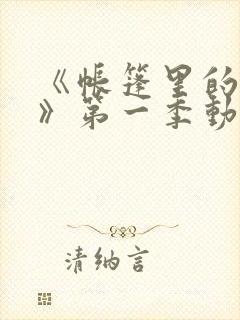 《帐篷里的
》第一季动
清纳言